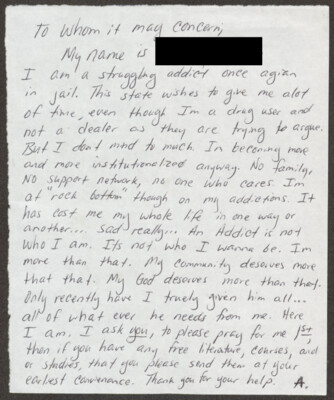 To whom it may concern,
My name is
I am a struggling addict once agian
in jail. This state wishes to give me alot
of time, even though I'm a drug user and
not a dealer as they are trying to argue.
But I dont mind to much. Im becoming more
and more institutionalized anyway. No family,
No support network, no one who cares. Im
at "rock bottom" though on my addictions. It
has cost me my whole life in one way or
another... sad really... An Addict is not
who I am. Its not who I wanna be. Im
more than that. My community deserves more
that that. My God deserves more than that.
Only recently have I truely given him all...
all of what ever he needs from me. Here
I am. I ask you, to please pray for me 1st,
then if you have any free literature, courses, and
or studies, that you please send them at your
earliest convenance. Thank you for your help. A.